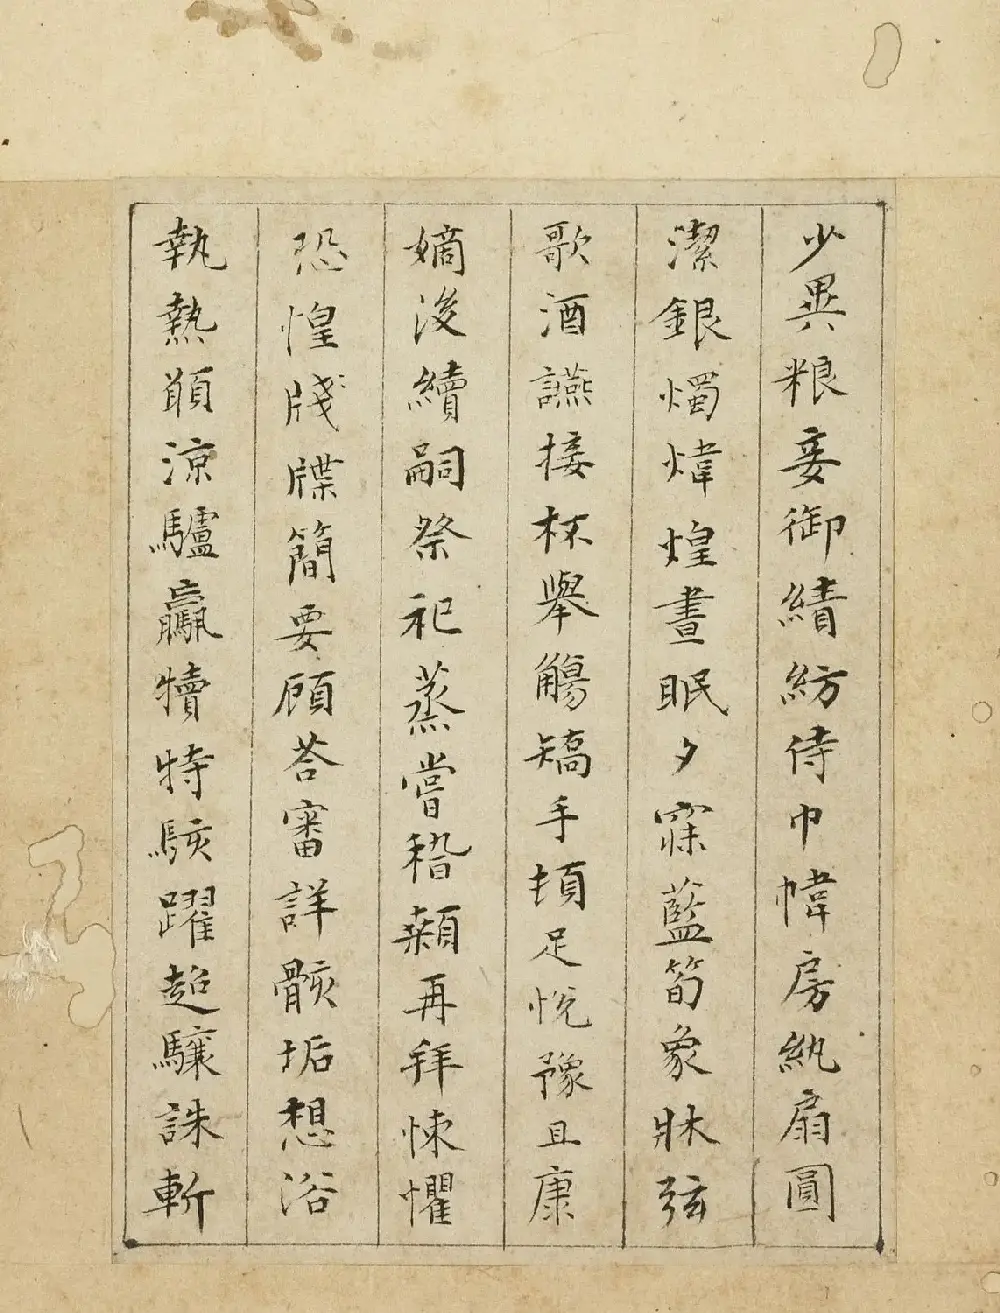 少異粮妾御績紡侍巾幃房紈扇圓
潔銀燭煒煌晝眠夕寐藍筍象牀弦
歌酒讌接杯舉觴矯手頓足悅豫且康
嫡後續嗣祭祀蒸嘗稽顙再拜悚懼
恐惶牋牒簡要顧荅審詳骸垢想浴
執熱願涼驢騾犢特駭躍超驤誅斬